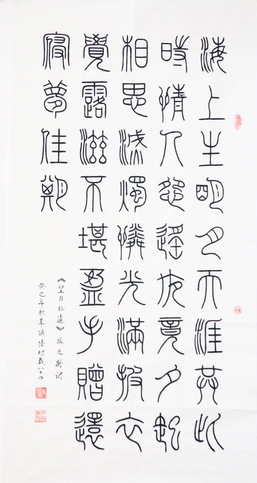 海上生明月天涯共此
時情人怨遙夜竟夕起
相思滅燭憐光滿披衣
覺露滋不堪盈手贈還
寢夢佳期
《望月怀远》张九龄诗
癸巳年秋